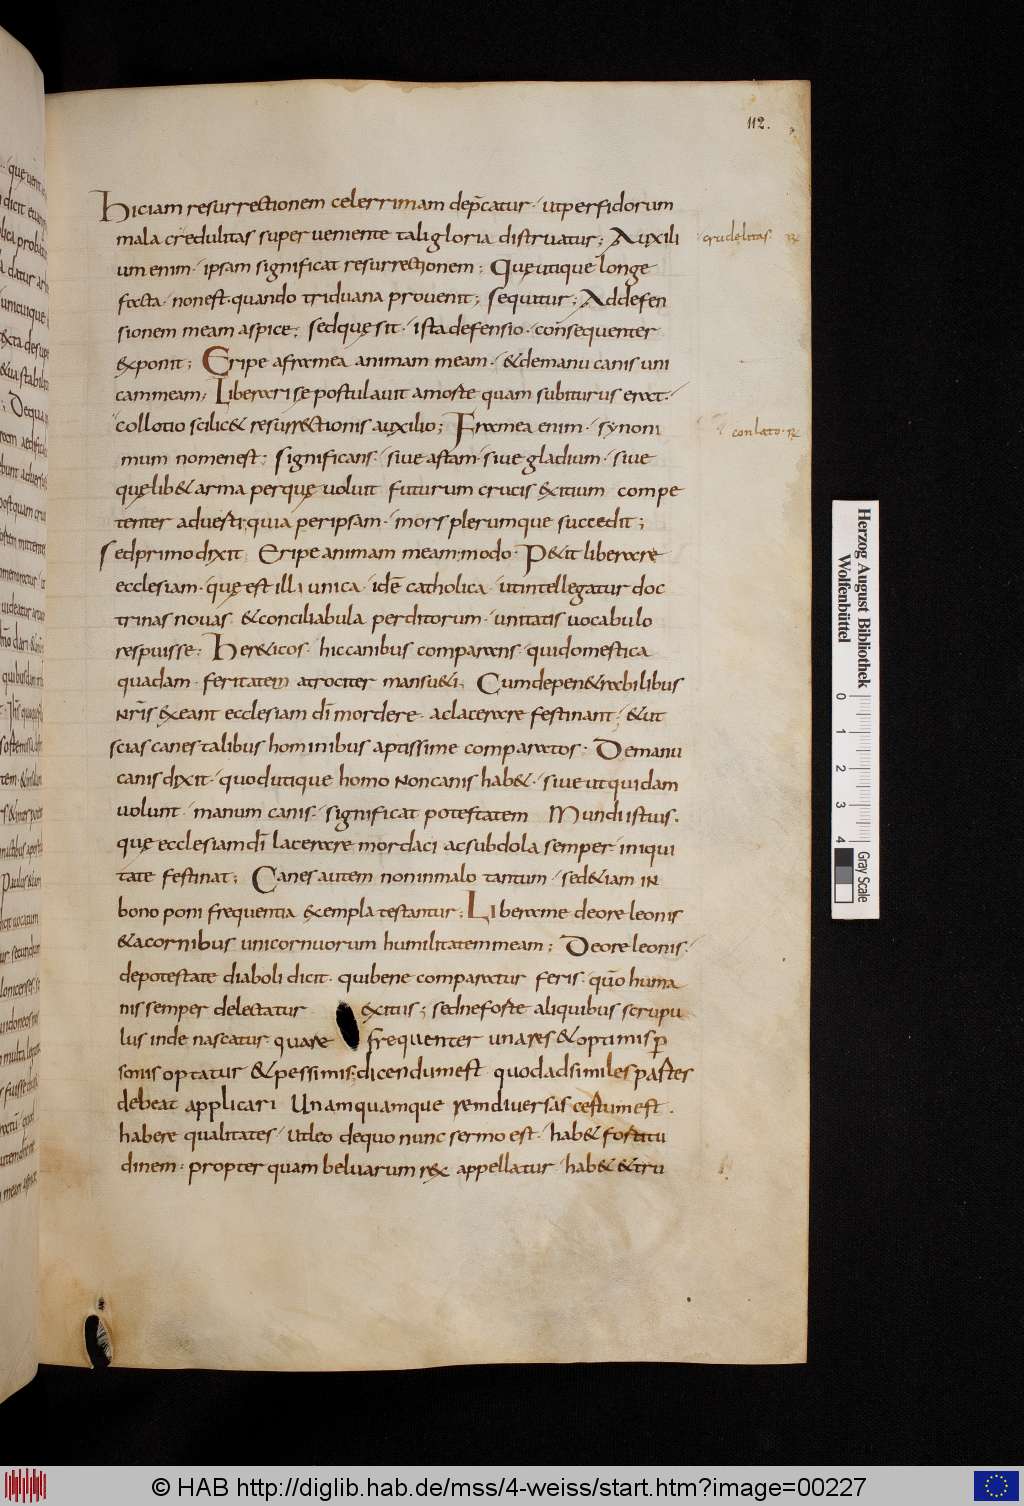 112.
Hic iam resurrectionem celerrimam dep̄catur · ut perfidorum
mala credulitas superuemente tali gloria distruatur; Auxili
crudelitas ·
um enim · ipsam significat resurrectionem; Quę utique longe
facta · non est · quando triduana prouenit; Sequitur; Ad defen
sionem meam aspice; Sed quę sit · ista defensio · consequenter
exponit; Eripe a framea animam meam · & de manu canis uni
cam meam; Liberari se postulauit a morte quam subiturus erat ·
collatio scilic& resurrectionis auxilio; Framea enim · synoni
conlato ·
mum nomen est; Significans · siue astam · siue gladium · siue
quęlib& arma per quę uoluit futurum crucis exitium compe
tenter aduerti; quia per ipsam · mors plerumque succedit;
Sed primo dixit Eripe animam meam · modo · P&it liberare
ecclesiam · quę est illi unica · idē catholica · ut intellegatur doc
trinas nouas & conciliabula perditorum · unitatis uocabulo
respuisse; Her&icos · hic canibus comparans · qui domestica
quadam · feritatem atrociter mansu&i; Cum de pen&rabilibus
nr̄is exeant ecclesiam dī mordere · ac lacerare festinant; & ut
scias canes talibus hominibus aptissime comparatos; De manu
canis dixit · quod utique homo non canis hab& · siue ut quidam
uolunt · manum canis · significat potestatem Mundi istius ·
quę ecclesiam dī lacerare mordaci ac subdola semper iniqui
tate festinat; Canes autem non in malo tantum · sed &iam in
bono poni frequentia exempla testantur; Libera me de ore leonis
& a cornibus unicornuorum humilitatem meam; De ore leonis ·
de potestate diaboli dicit · qui bene comparatur feris · qūo huma
nis semper delectatur exitiis; sed ne forte aliquibus scrupu
lus inde nascatur · quare frequenter una res & optimis p̲
sonis optatur & pessimis; dicendum est quod ad similes partes
debeat applicari Unamquamque rem diuersas certum est ·
habere qualitates · Ut leo de quo nunc sermo est · hab& fortitu
dinem · propter quam beluarum rex appellatur · hab& & tru
Herzog August Bibliothek
Wolfenbüttel
0 1 2 3 4
Gray Scale
© HAB http://diglib.hab.de/mss/4-weiss/start.htm?image=00227